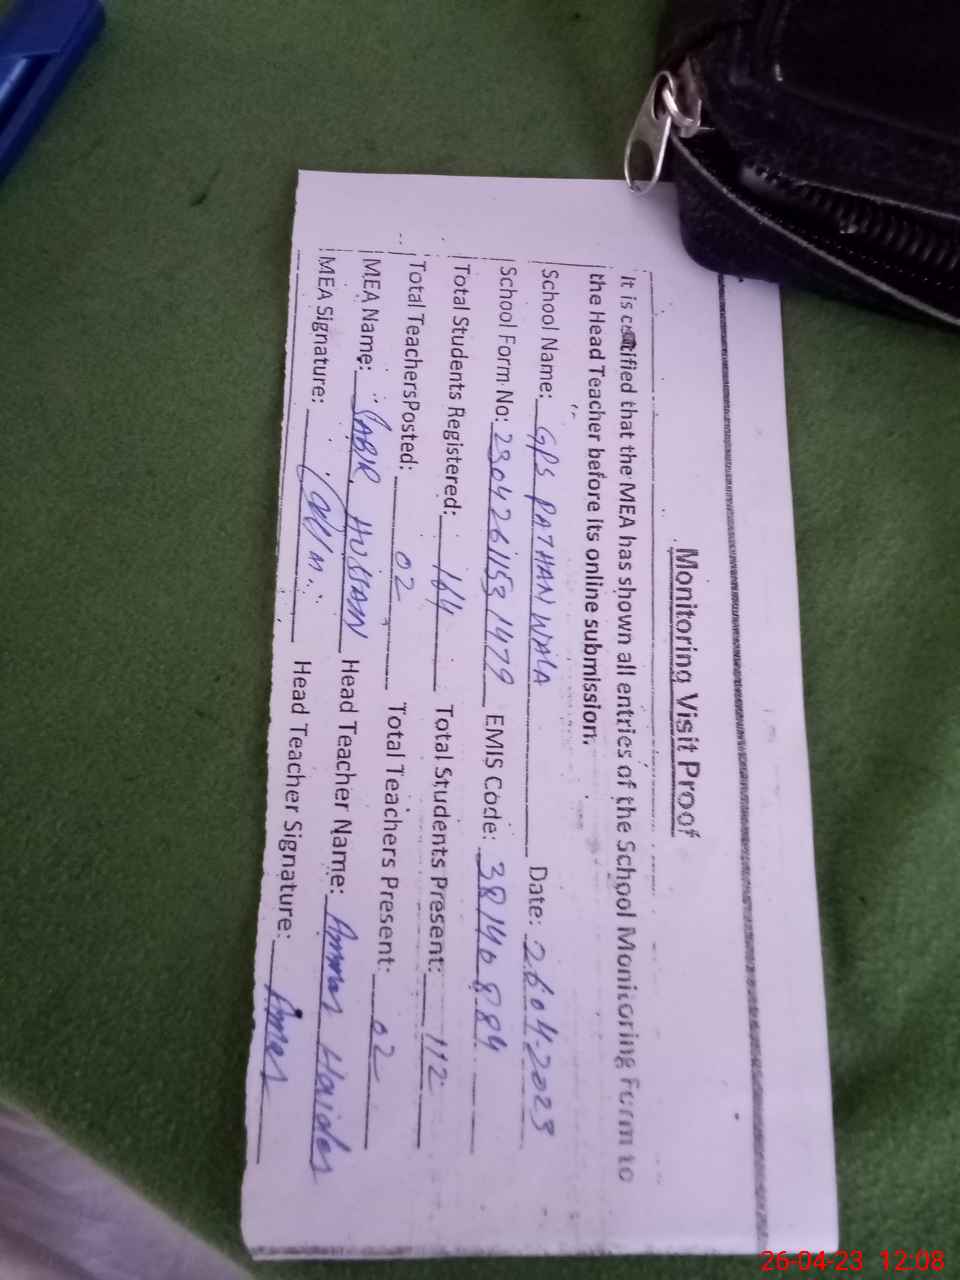 Monitoring Visit Proof
It is certified that the MEA has shown all entries of the School Monitoring Form to
the Head Teacher before its online submission.
School Name: GPS PATHAN WALA Date: 26.04.2023
School Form No: 2304261153 1479 EMIS Code: 38140884
Total Students Registered: 164 Total Students Present: 112
Total TeachersPosted: 02 Total Teachers Present: 02
MEA Name: SABIR HUSSAN Head Teacher Name: Ammar Haider
MEA Signature: Head Teacher Signature: Ammar
26-04-23 12:08